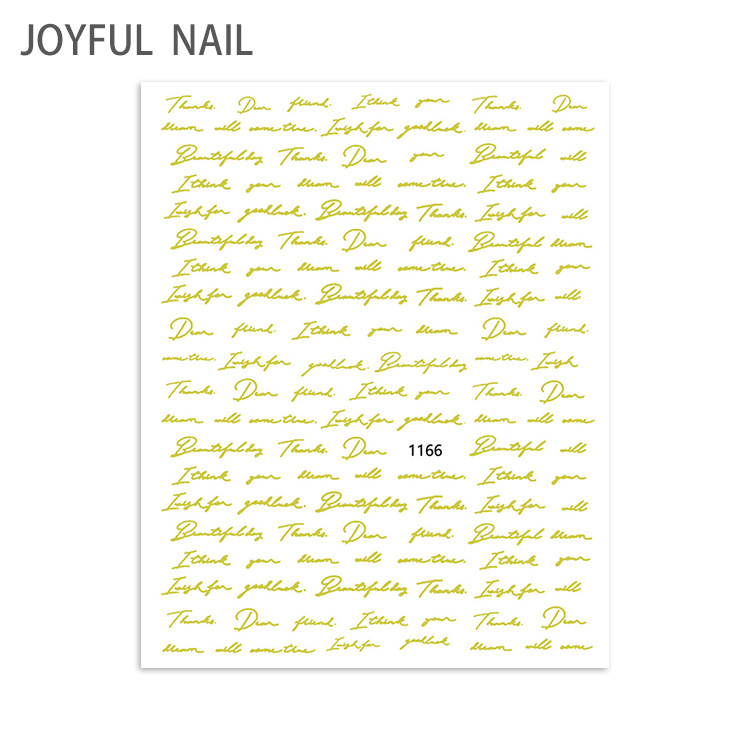 JOYFUL NAIL
Thanks. Dear friend. I think your Thanks. Dear
dream will come true. I wish for goodluck. dream will come
Beautiful day Thanks. Dear your Beautiful will
I think your dream will come true. I think your
I wish for goodluck. Beautiful day Thanks. I wish for will
Beautiful day Thanks. Dear friend. Beautiful dream
I think your dream will come true. I think your
I wish for goodluck. Beautiful day Thanks. I wish for will
Dear friend. I think your dream Dear friend.
come true. I wish for goodluck. Beautiful day come true. I wish
Thanks. Dear friend. I think your Thanks. Dear
dream will come true. I wish for goodluck. dream will come
Beautiful day Thanks. Dear 1166 Beautiful will
I think your dream will come true. I think your
I wish for goodluck. Beautiful day Thanks. I wish for will
Beautiful day Thanks. Dear friend. Beautiful dream
I think your dream will come true. I think your
I wish for goodluck. Beautiful day Thanks. I wish for will
Thanks. Dear friend. I think your Thanks. Dear
dream will come true I wish for goodluck dream will come